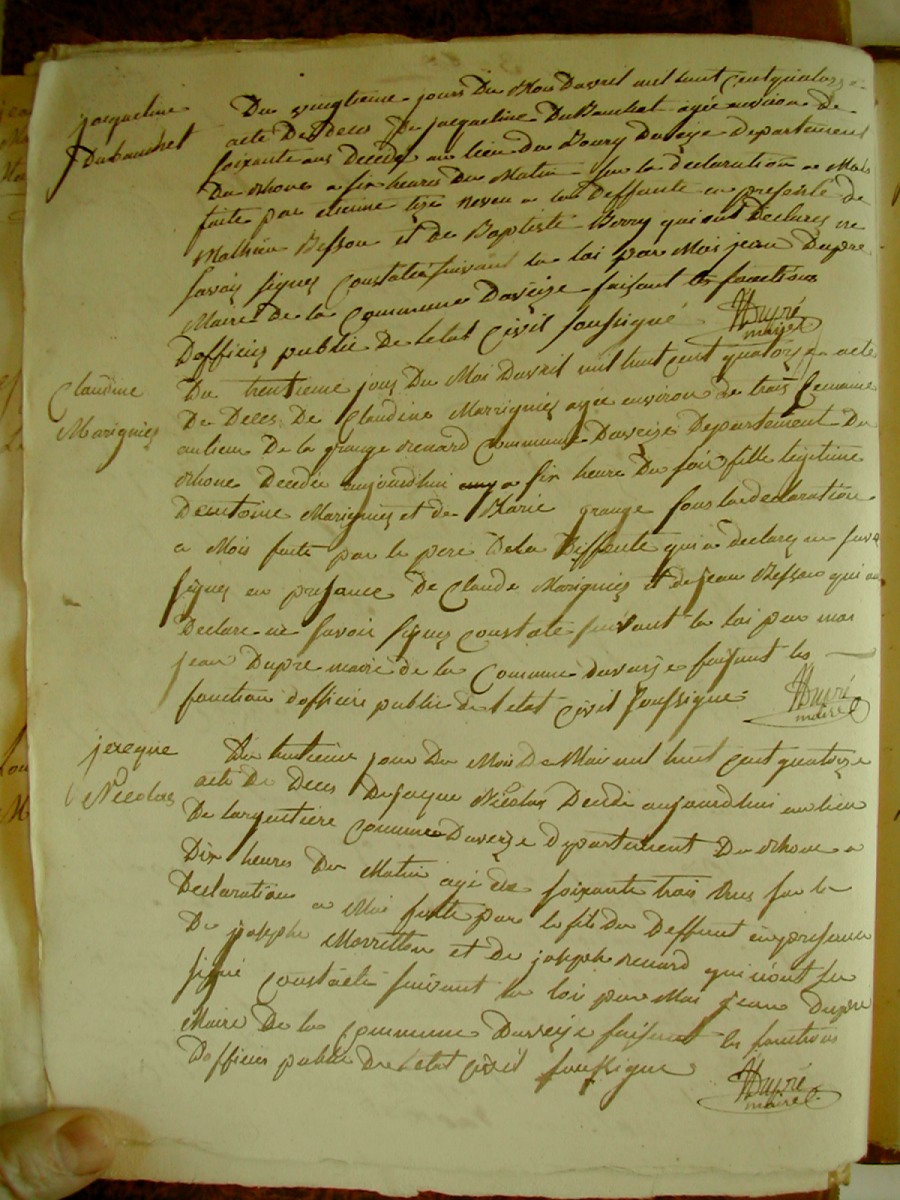 jacqueline
Dubanchet
Du vingtieme jours Du Mois Davril mil huit Cent quatorze
acte De Deces De jacqueline Dubanchet agée environ de
soixante ans Decedé au lieu du Bourg Daveze Departement
Du rhone a six heures Du Matin sur la declaration a Moi
faite par etienne neveu a la Deffunte en presence de
Mathieu Besson et de Baptiste Berry qui ont Declarez ne
savoir signez Constatée suivant la loi par Moi jean Dupre
Maire de la Commune Daveize faisant les fonctions
Dofficiez public De letat Civil soussigné
JDupré
maire
Claudine
Marigniez
Du trentieme jour Du Moi Davril mil huit Cent quatorze acte
De Deces De Claudine Marrigniez agée environ de trois semaine
au lieu De la grange renard Commune Daveize Departement Du
rhone Decedée aujourdhui a six heure Du soir fille legitime
Dantoine Marigniez et de Marie grange sous la declaration
a Moi faite par le pere De la Deffunte qui a declarez ne savoir
signez en presance De Claude Marigniez et de jean Besson qui on
Declare ne savoir signez Constaté suivant la loi par moi
jean Dupre maire de la Commune Daveize faisant les
fonction dofficier public de letat Civil soussigne
JDupré
maire
jacque
Nicolas
Du huitieme jour Du Mois De Mai mil huit Cent quatorze
acte De Deces De jaque Nicolas Decedé aujourdhui au lieu
De largentiere Commune Daveize departement Du rhone a
Dix heures Du Matin agé de soixante trois ans sur la
Declaration a Moi faite par le fils Du Deffunt en presence
De joseph Morretton et de joseph renard qui nont su
signé Constaté suivant la loi par Moi jean Dupré
Maire De la Commune Daveize faisant les fonctions
Dofficier public De letat Civil soussigne
JDupré
maire